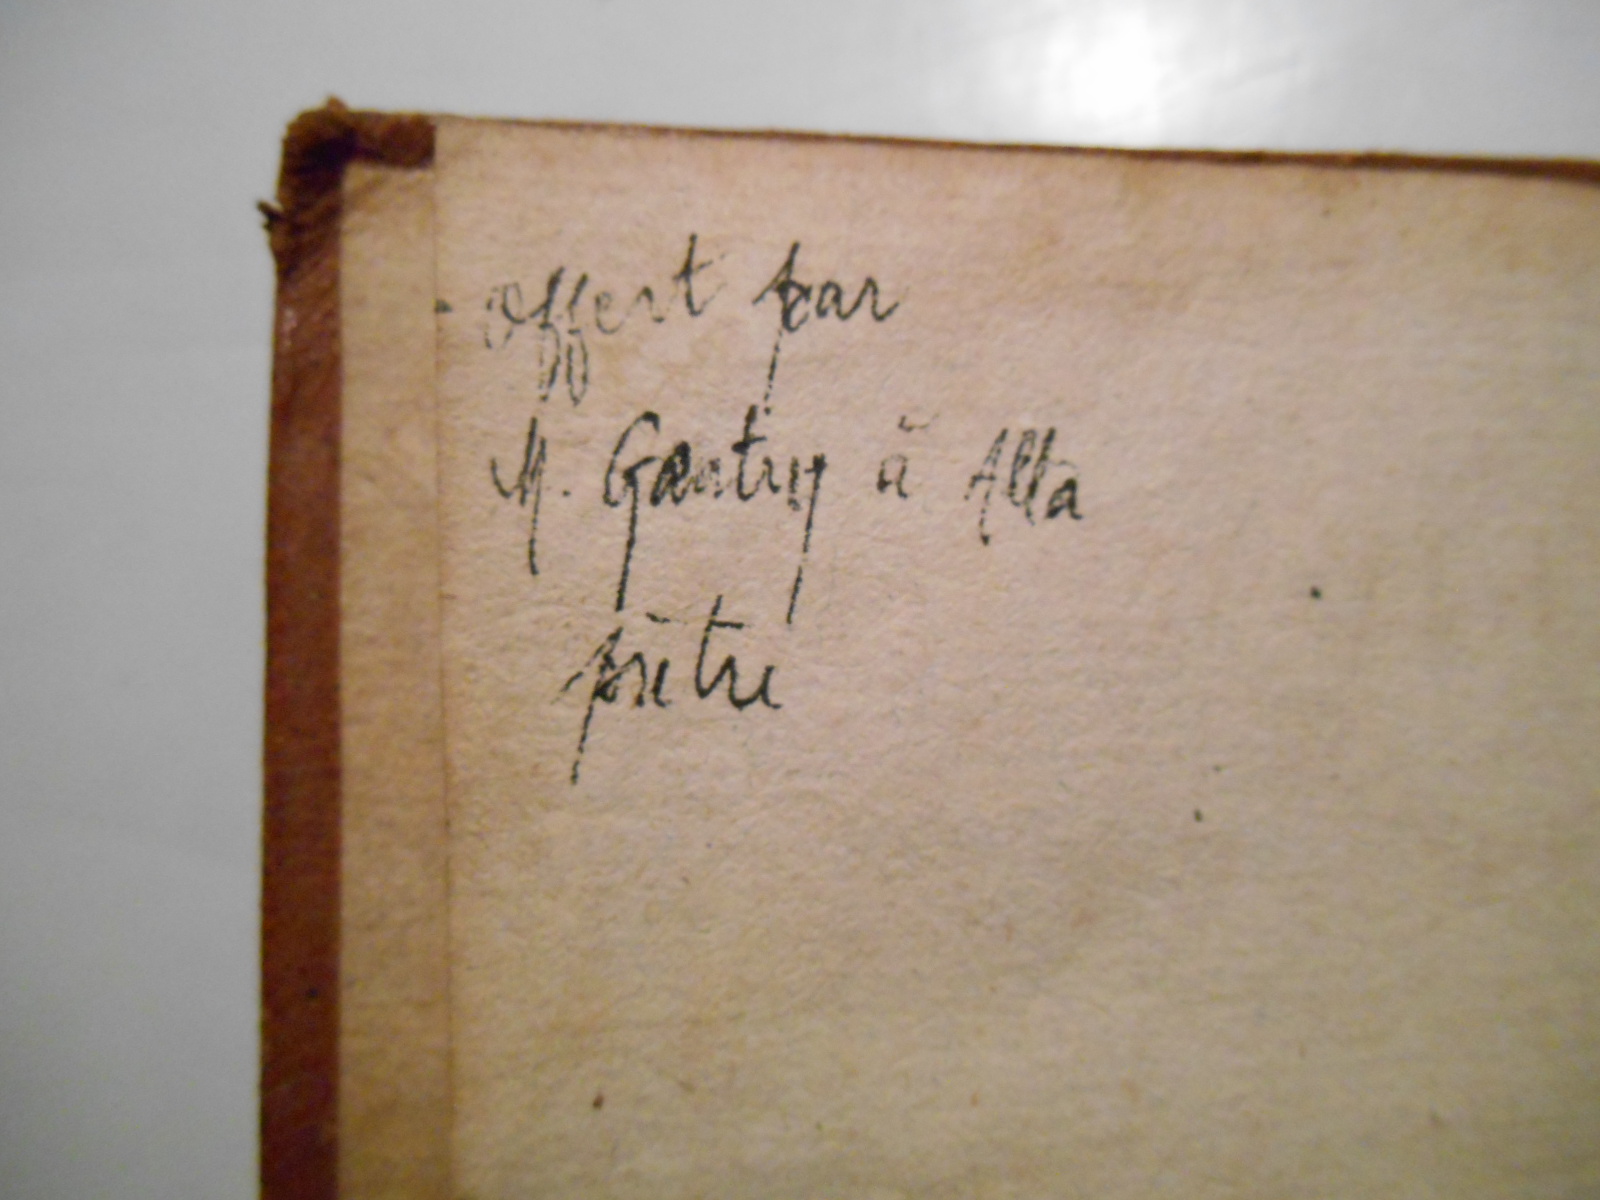 offert par
M. Gautry à Alta
prêtre